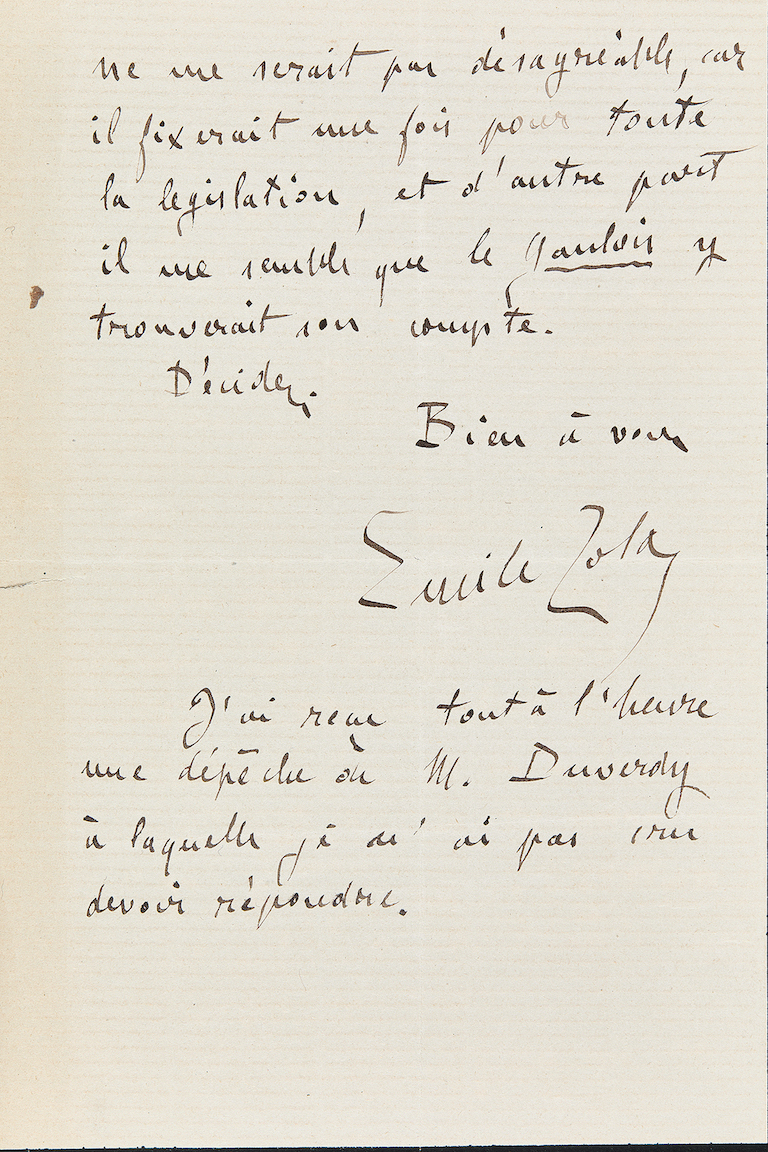 ne me serait pas désagréable, car
il fixerait une fois pour toute
la législation, et d'autre part
il me semble que le Gaulois y
trouverait son compte.
Décidez.
Bien à vous
Emile Zola
J'ai reçu tout à l'heure
une dépêche de M. Duverdy
à laquelle je n'ai pas cru
devoir répondre.